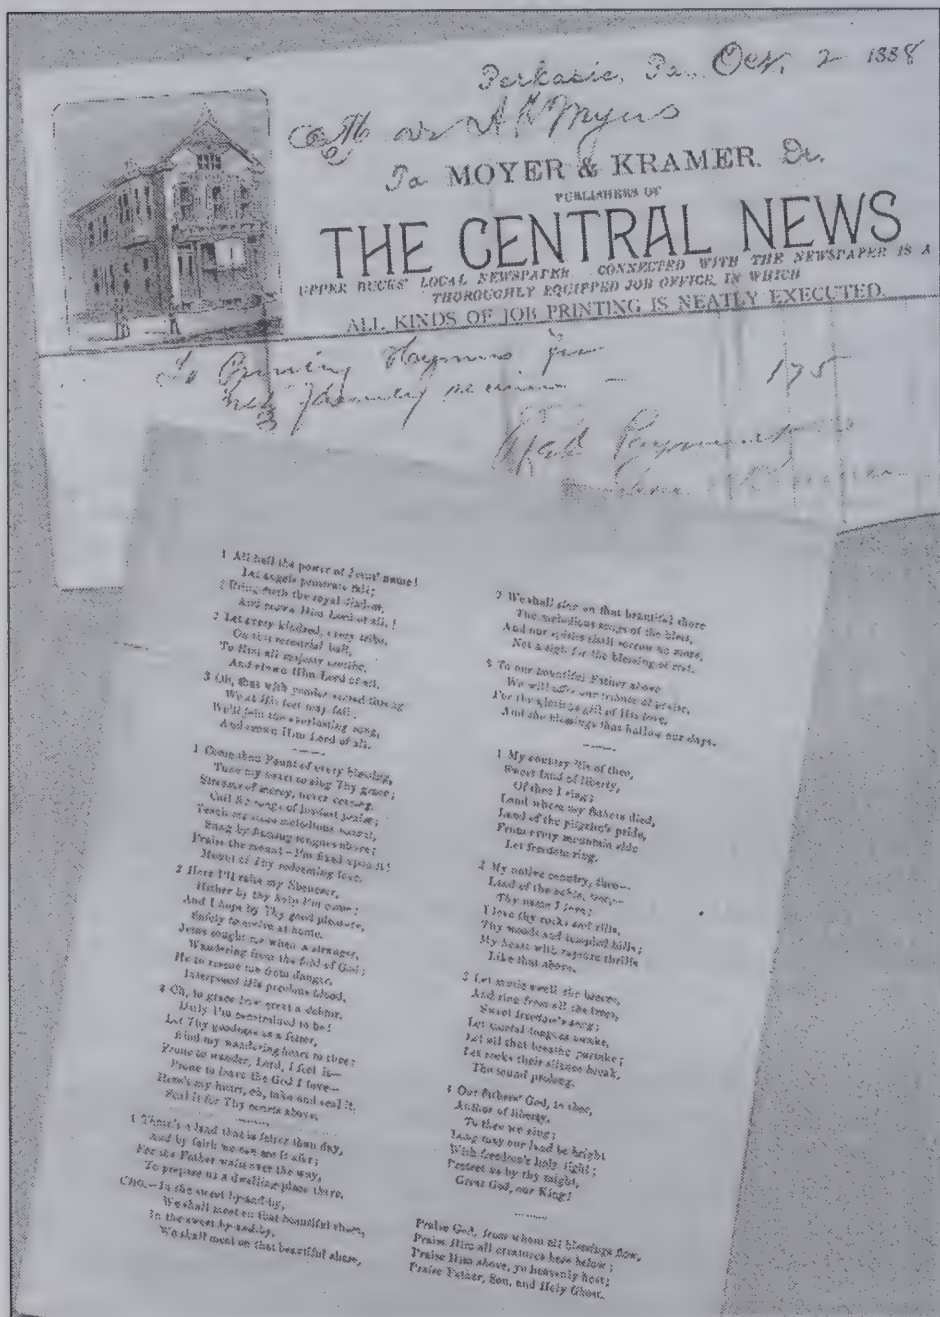 Perkasie, Pa., Oct. 2 1888
M
To MOYER & KRAMER. Dr.
PUBLISHERS OF
THE CENTRAL NEWS
UPPER BUCKS' LOCAL NEWSPAPER. CONNECTED WITH THE NEWSPAPER IS A
THOROUGHLY EQUIPPED JOB OFFICE, IN WHICH
ALL KINDS OF JOB PRINTING IS NEATLY EXECUTED.
To Printing Hymns for
175
Payment
1 All hail the power of Jesus' name!
Let angels prostrate fall;
Bring forth the royal diadem,
And crown Him Lord of all.
2 Let every kindred, every tribe,
On this terrestrial ball,
To Him all majesty ascribe,
And crown Him Lord of all.
3 Oh, that with yonder sacred throng
We at His feet may fall.
We'll join the everlasting song,
And crown Him Lord of all.
1 Come thou Fount of every blessing,
Tune my heart to sing Thy grace;
Streams of mercy, never ceasing,
Call for songs of loudest praise;
Teach me some melodious sonnet,
Sung by flaming tongues above;
Praise the mount—I'm fixed upon it!
Mount of Thy redeeming love.
2 Here I'll raise my Ebenezer,
Hither by thy help I'm come;
And I hope by Thy good pleasure,
Safely to arrive at home.
Jesus sought me when a stranger,
Wandering from the fold of God;
He to rescue me from danger,
Interposed His precious blood.
Oh, to grace how great a debtor,
Daily I'm constrained to be!
Let Thy goodness as a fetter,
Bind my wandering heart to thee:
Prone to wander, Lord, I feel it—
Prone to leave the God I love—
Here's my heart, oh, take and seal it,
Seal it for Thy courts above.
1 There's a land that is fairer than day,
And by faith we can see it afar;
For the Father waits over the way,
To prepare us a dwelling place there.
CHO.—In the sweet by-and-by,
We shall meet on that beautiful shore,
In the sweet by-and-by,
We shall meet on that beautiful shore,
2 We shall sing on that beautiful shore
The melodious songs of the blest,
And our spirits shall sorrow no more,
Not a sigh for the blessing of rest.
3 To our bountiful Father above
We will offer our tribute of praise,
For the glorious gift of His love,
And the blessings that hallow our days.
1 My country 'tis of thee,
Sweet land of liberty,
Of thee I sing;
Land where my fathers died,
Land of the pilgrim's pride,
From every mountain side
Let freedom ring.
2 My native country, thee—
Land of the noble, free,—
Thy name I love;
I love thy rocks and rills,
Thy woods and templed hills;
My heart with rapture thrills
Like that above.
3 Let music swell the breeze,
And ring from all the trees,
Sweet freedom's song;
Let mortal tongues awake,
Let all that breathe partake;
Let rocks their silence break,
The sound prolong.
4 Our fathers' God, to thee,
Author of liberty,
To thee we sing;
Long may our land be bright
With freedom's holy light;
Protect us by thy might,
Great God, our King!
Praise God, from whom all blessings flow,
Praise Him all creatures here below;
Praise Him above, ye heavenly host;
Praise Father, Son, and Holy Ghost.